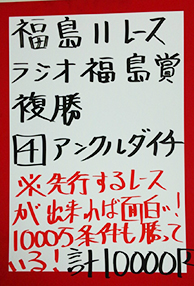 福島11レース
ラジオ福島賞
複勝
4 アンクルダイチ
※先行するレース
が出来れば面白い!
1000万条件も勝って
いる! 計10000円